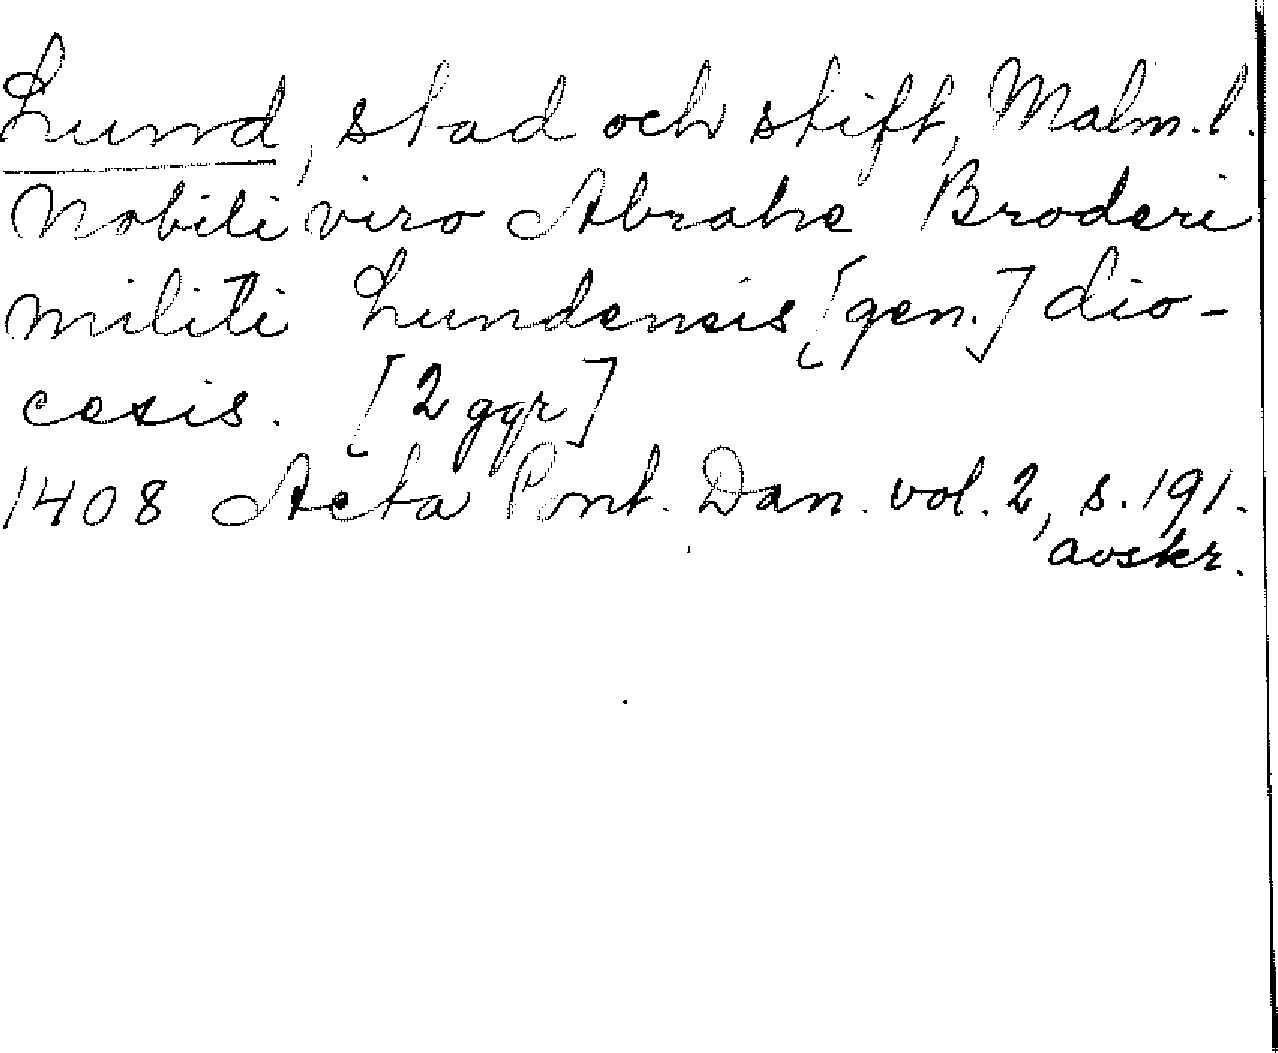 Lund, stad och stift, Malm.l.
Nobili viro Abrahe Broderi
militi Lundensis [gen.] dio-
cesis. [2 ggr]
1408 Acta Pont. Dan. vol. 2, s. 191.
avskr.